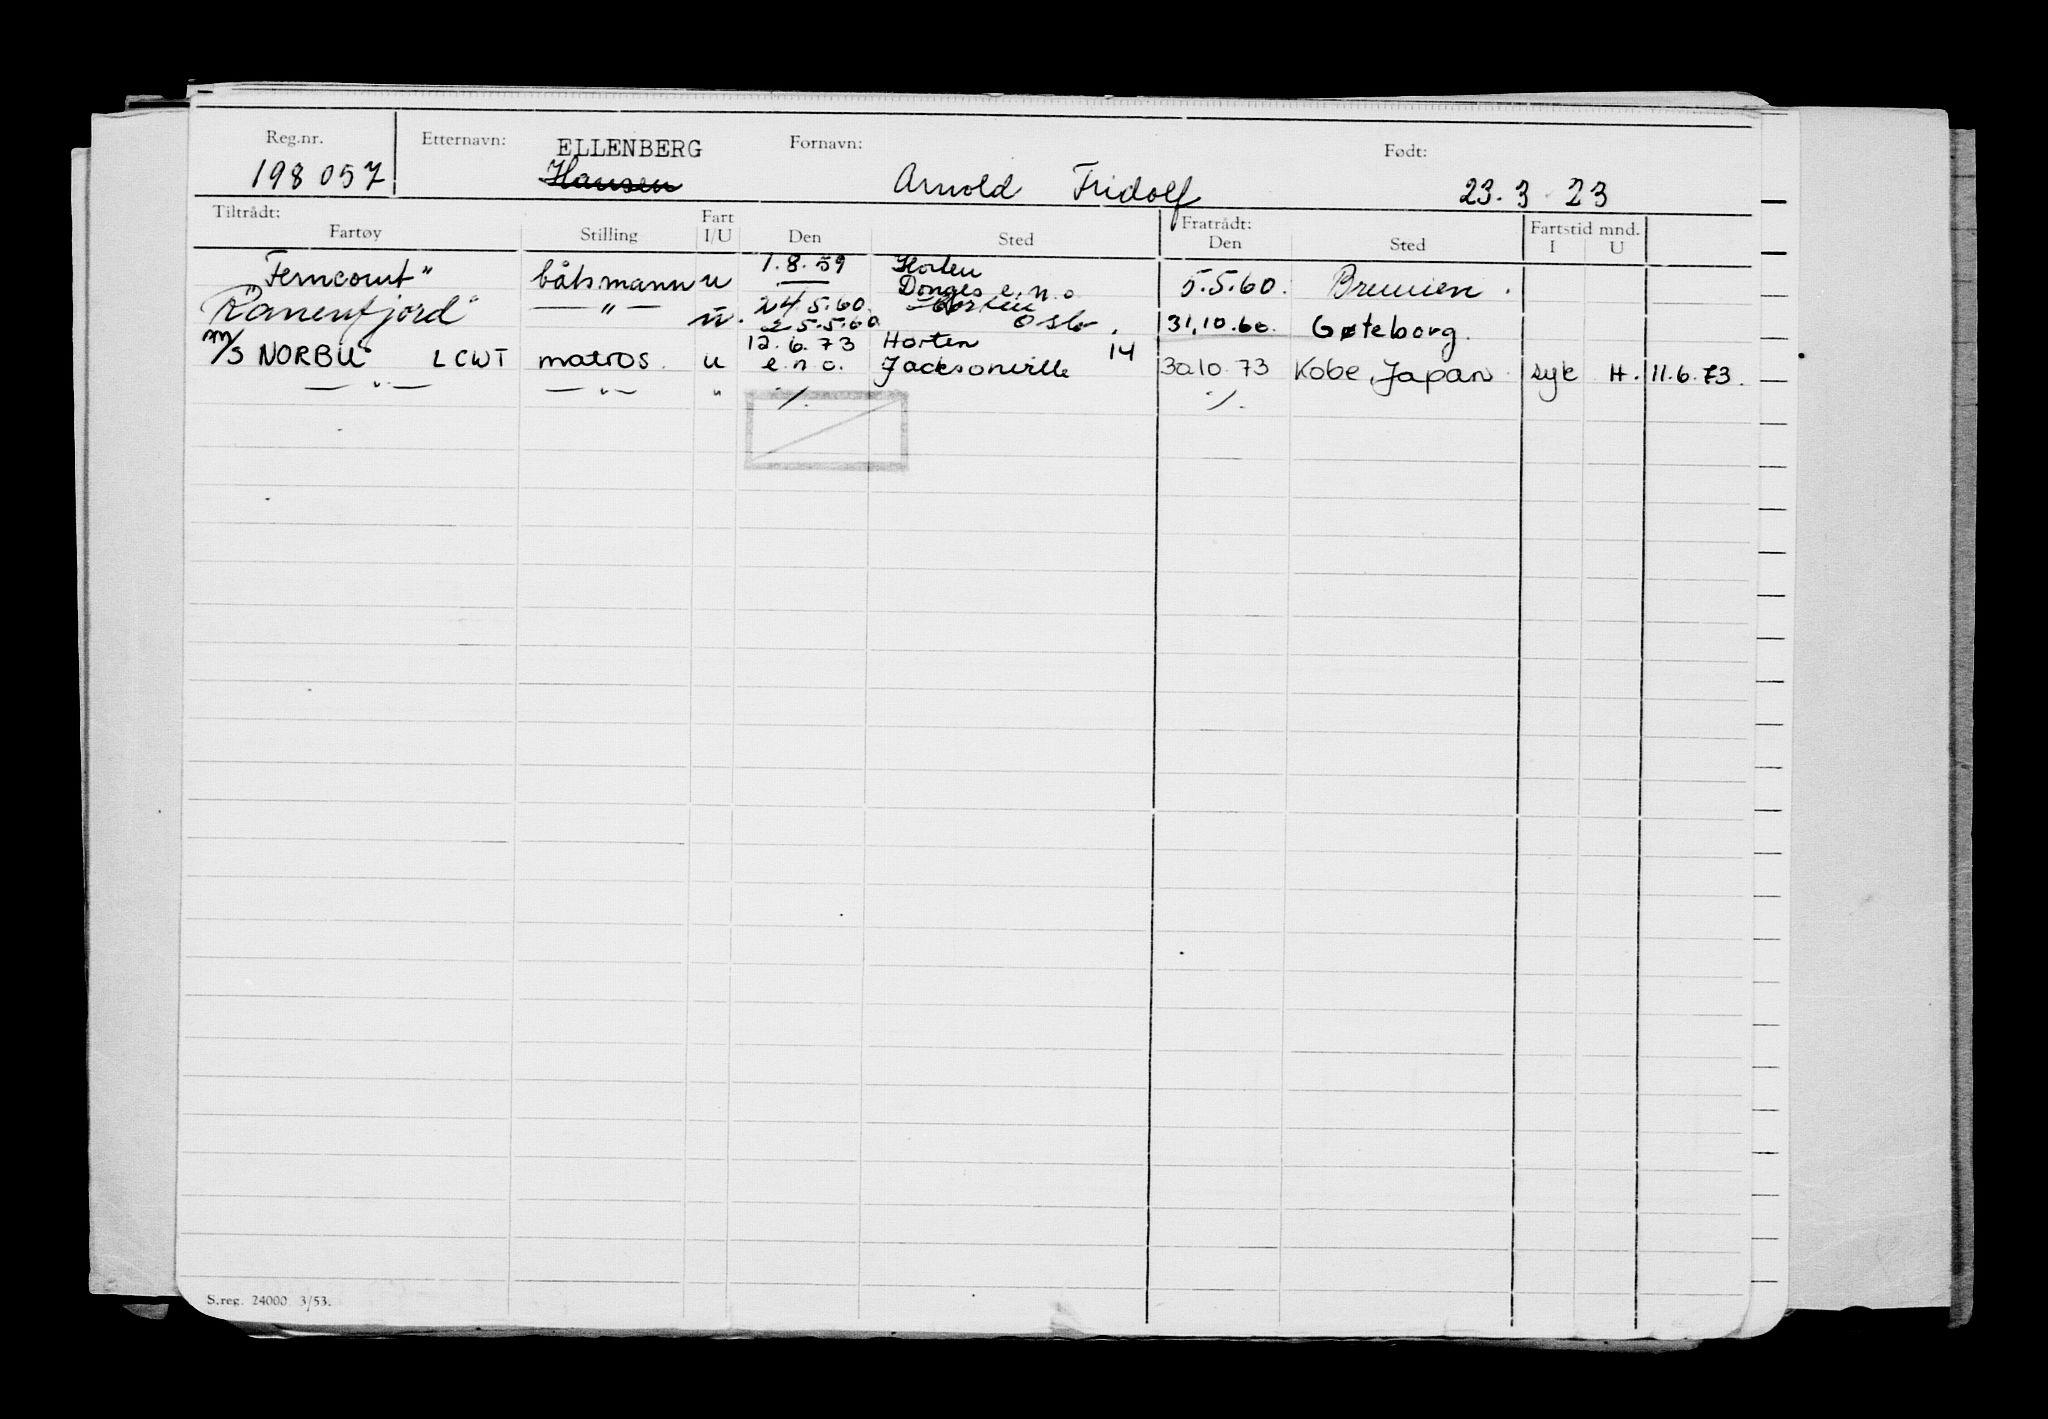 Reg.nr. Etternavn: ELLENBERG Fornavn: Født:
198 057 Hansen Arnold Fridolf 23.3.23
Tiltrådt: Fart Fratrådt: Fartstid mnd.
Fartøy Stilling I/U Den Sted Den Sted I U
"Ferncourt" båtsmann u 1.8.59 Horten 5.5.60. Bremen.
— Donges e.n.o
"Ranenfjord" —"— u. 24.5.60. Horten
25.5.60 Oslo. 31.10.60. Gøteborg.
m/s NORBU LCWT matros. u 12.6.73 Horten 14 30.10.73 Kobe, Japan syk H. 11.6.73.
—"— —"— " e.n.o. Jacksonville
./. ./.
S.reg. 24000 3/53.